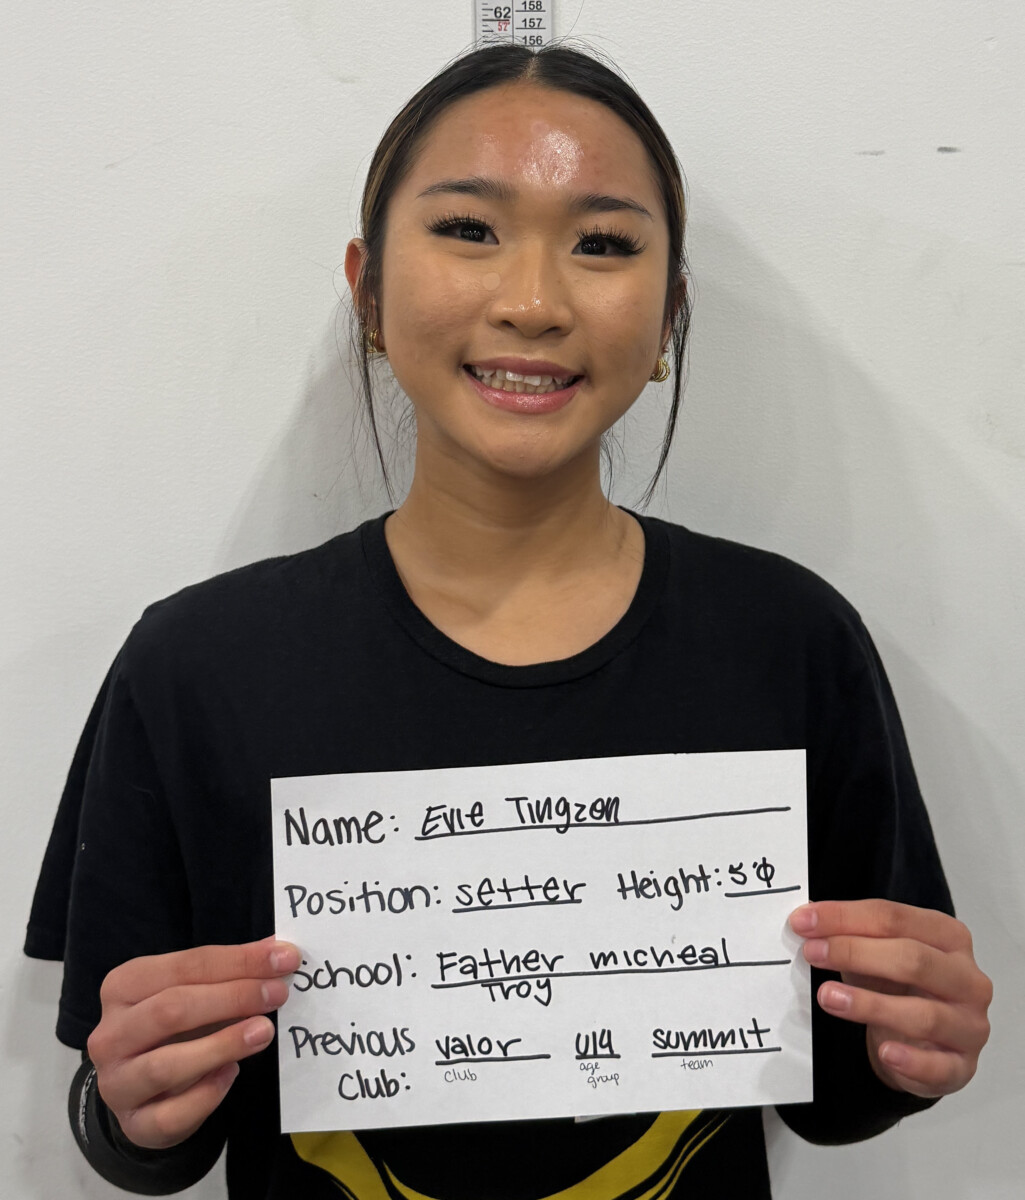 158
62 157
57
156
Name: Evie Tingzon
Position: setter Height: 5'0
School: Father micheal
Troy
Previous valor U14 summit
Club: club age group team